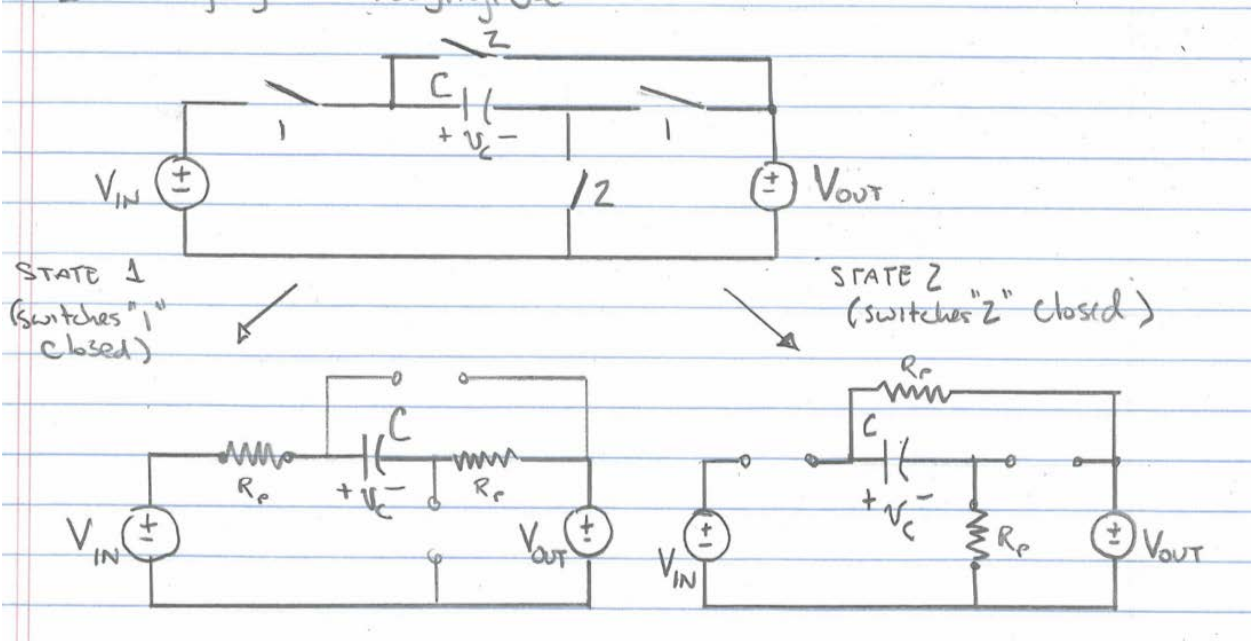 2
C
1
+ v_c −
1
V_IN
+
−
/2
+
−
V_OUT
STATE 1
(switches "1"
closed)
STATE 2
(switches "2" closed)
R_p
C
R_p
+ v_c −
R_p
V_IN
+
−
V_OUT
+
−
C
+ v_c −
R_p
V_IN
+
−
+
−
V_OUT